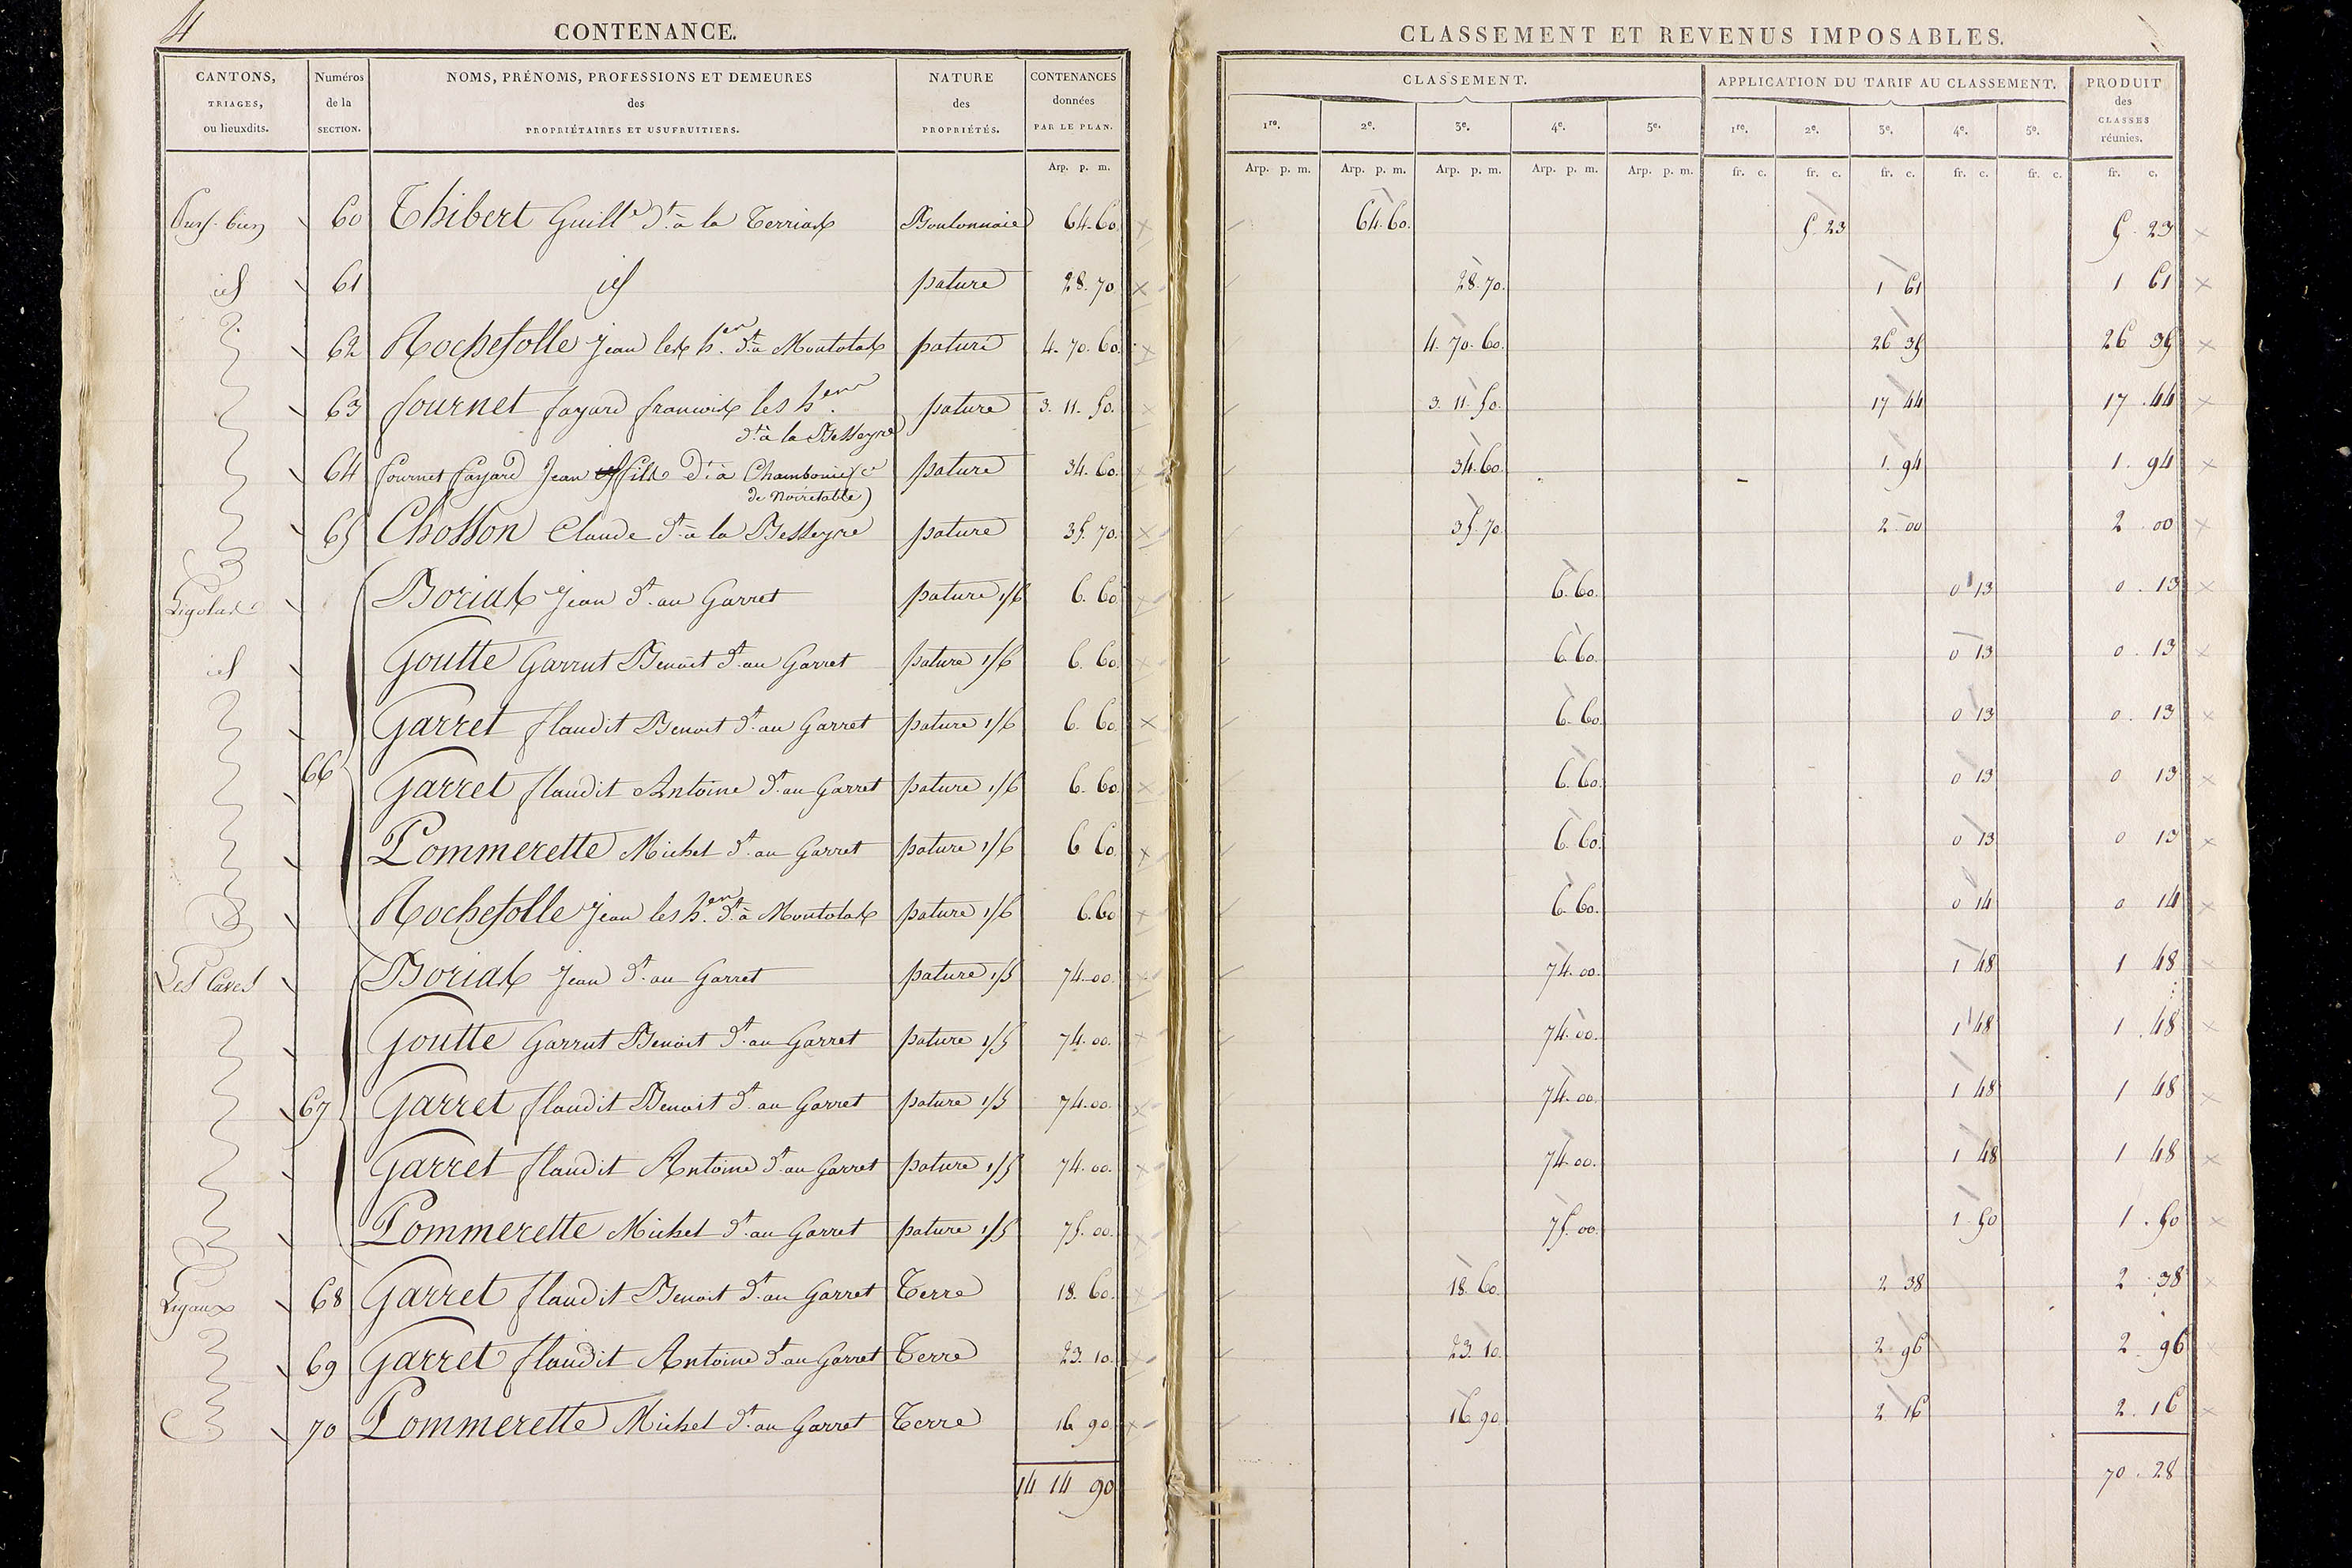 4
CONTENANCE.
CLASSEMENT ET REVENUS IMPOSABLES.
CANTONS, TRIAGES, ou lieuxdits. Numéros de la SECTION. NOMS, PRÉNOMS, PROFESSIONS ET DEMEURES des PROPRIÉTAIRES ET USUFRUITIERS. NATURE des PROPRIÉTÉS. CONTENANCES données PAR LE PLAN. CLASSEMENT. APPLICATION DU TARIF AU CLASSEMENT. PRODUIT des CLASSES réunies.
1re. 2e. 3e. 4e. 5e. 1re. 2e. 3e. 4e. 5e.
Arp. p. m. Arp. p. m. Arp. p. m. Arp. p. m. Arp. p. m. Arp. p. m. fr. c. fr. c. fr. c. fr. c. fr. c. fr. c.
60 Thibert Guille dt à la Terrias Boulonnaie 64.60. 64.60. 5 23 5 . 23
id 61 id pature 28.70 28.70. 1 61 1 61
62 Rochefolle Jean les hen dt à Montolas pature 4.70.60. 4.70.60. 26 35 26 35
63 fournet fayard francois les hen pature 3.11.50. 3.11.50. 17 44 17 .44
dt à la Besseyre
64 fournet fayard Jean fils dt à Chambonie (ce pature 34.60. 34.60. 1.94 1. 94
de Noiretable)
65 Chosson Claude dt à la Besseyre pature 35.70. 35.70. 2 00 2 .00
Ligolas Borias Jean dt au Garret pature 1/6 6.60 6.60. 0 13 0 . 13
id Goutte Garrut Benoit dt au Garret pature 1/6 6.60. 6.60. 0 13 0 . 13
Garret flaudit Benoit dt au Garret pature 1/6 6.60 6.60. 0 13 0 . 13
66 Garret flaudit Antoine dt au Garret pature 1/6 6.60. 6.60. 0 13 0 13
Pommerette Michel dt au Garret pature 1/6 6 60 6.60. 0 13 0 13
Rochefolle Jean les hen dt à Montolas pature 1/6 6.60 6.60. 0 14 0 14
Les Caves Borias Jean dt au Garret pature 1/5 74.00. 74.00. 1 48 1 48
Goutte Garrut Benoit dt au Garret pature 1/5 74.00. 74.00. 1 48 1 .48
67 Garret flaudit Benoit dt au Garret pature 1/5 74.00. 74.00. 1 48 1 48
Garret flaudit Antoine dt au Garret pature 1/5 74.00. 74.00. 1 48 1 48
Pommerette Michel dt au Garret pature 1/5 75.00. 75.00. 1 50 1 . 50
Ligaux 68 Garret flaudit Benoit dt au Garret Terre 18.60. 18.60. 2 38 2 . 38
69 Garret flaudit Antoine dt au Garret Terre 23.10. 23.10. 2 96 2 96
70 Pommerette Michel dt au Garret Terre 16 90. 16.90. 2 16 2.16
14 14 90 70.28